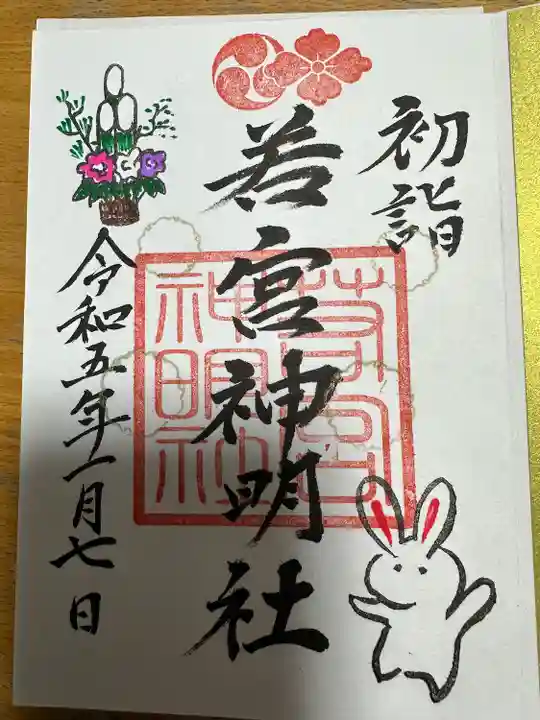 初詣
若宮神明社
令和五年一月七日
若宮
神明社